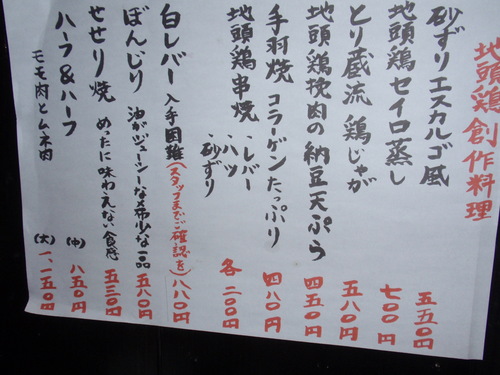 地頭鶏創作料理
砂ずりエスカルゴ風 五五〇円
地頭鶏セイロ蒸し 七〇〇円
とり蔵流 鶏じゃが 五八〇円
地頭鶏挽肉の納豆天ぷら 四五〇円
手羽焼 コラーゲンたっぷり 四八〇円
地頭鶏串焼 ・レバー ・ハツ ・砂ずり 各 二〇〇円
白レバー 入手困難(スタッフまでご確認を) 八八〇円
ぼんじり 油がジューシーな希少な一品 五八〇円
せせり焼 めったに味わえない食感 五三〇円
ハーフ&ハーフ (中) 八五〇円
モモ肉とムネ肉 (大) 一、一五〇円